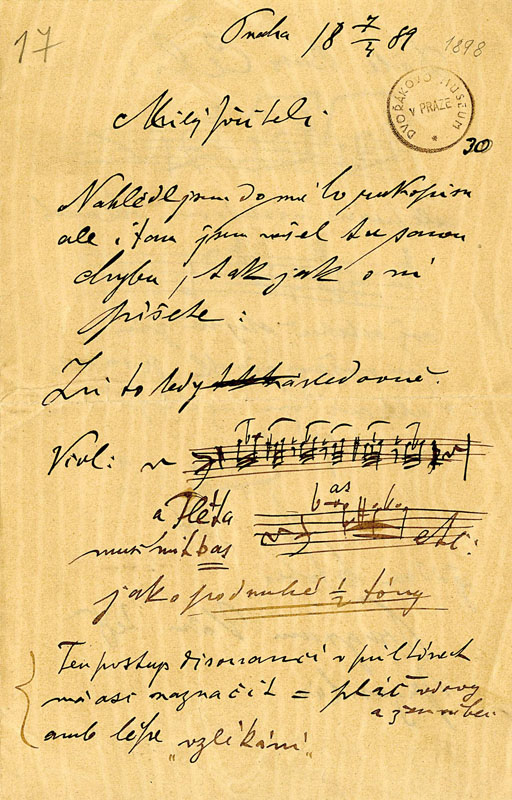 17
Praha 18 7/4 89 1898
DVOŘÁKOVO MUSEUM
V PRAZE
30
Milý příteli
Nahlédl jsem do mého rukopisu
ale i tam jsem našel tu samou
chybu, tak jak o ní
píšete:
Zní to tedy následovně.
Viol:
a Fléta as
musí mít bas etc:
jako podruhé ½ tóny
Ten postup disonancí v půltónech
má asi naznačit = pláč vdovy
a
anebo lépe "vzlíkání"